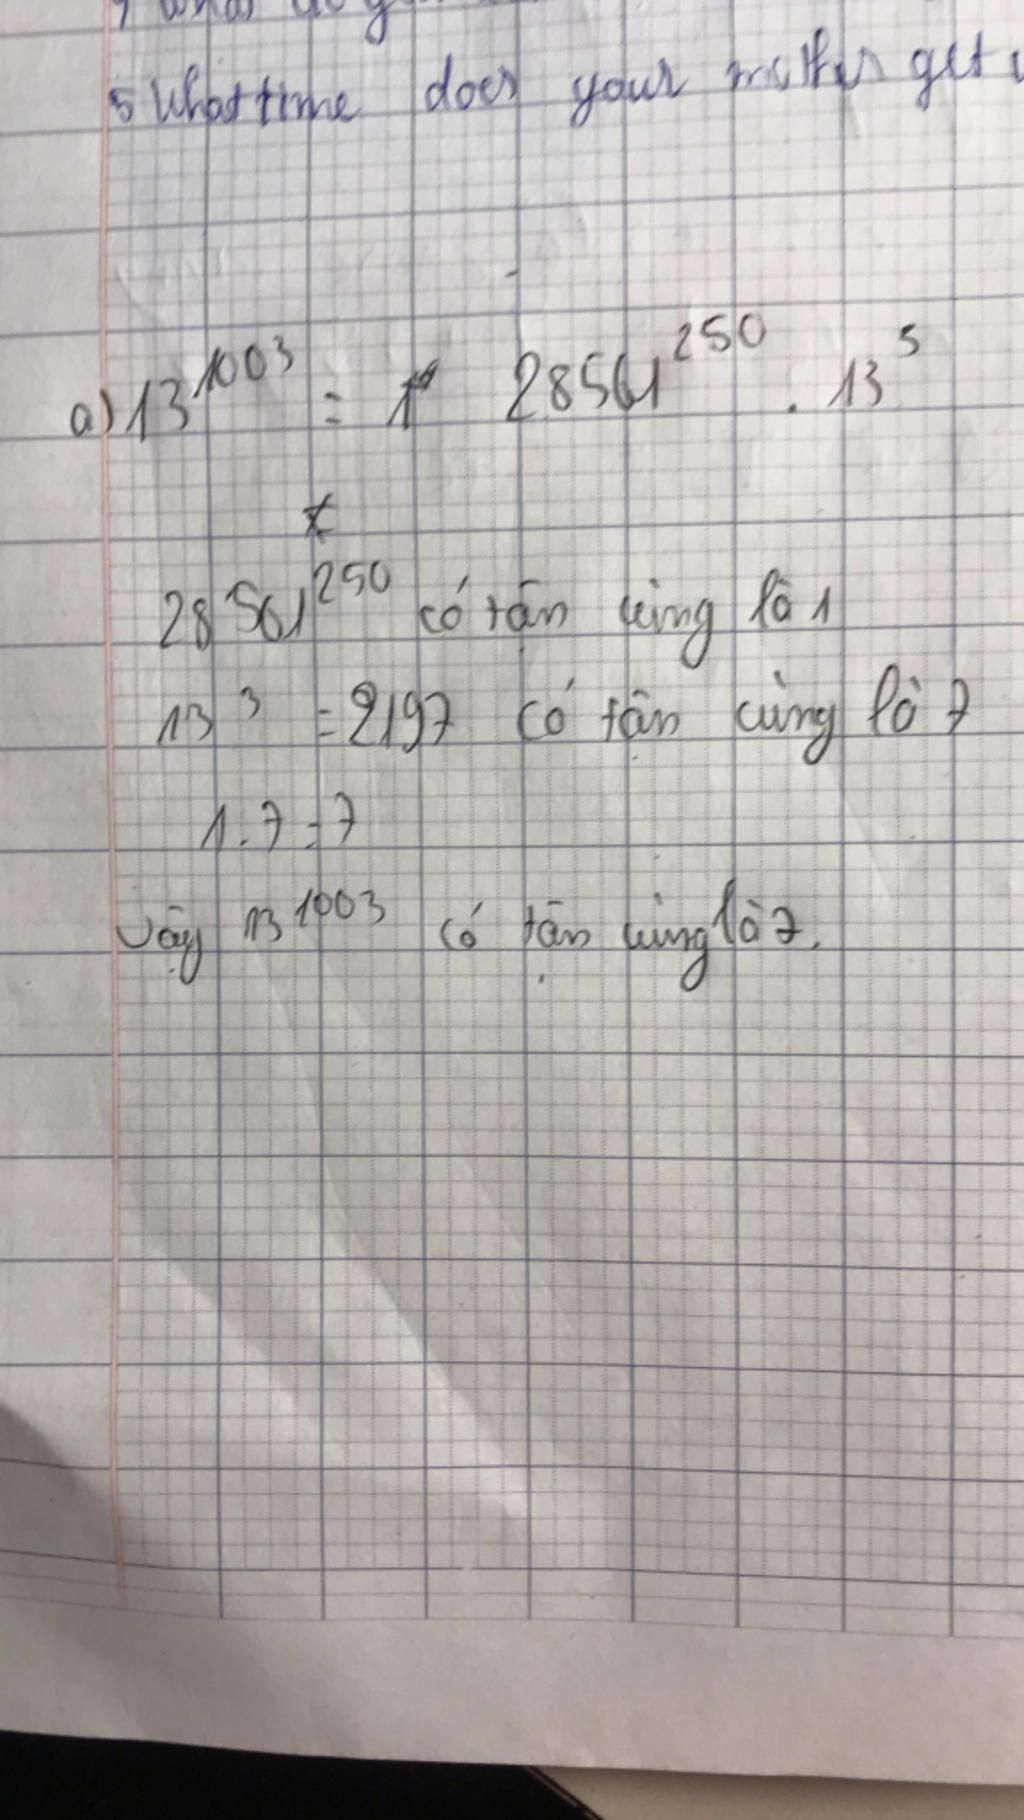 5 What time does your mother get
a) 13^1003 = 28561^250 . 13^3
28561^250 có tận cùng là 1
13^3 = 2197 có tận cùng là 7
1.7=7
Vậy 13^1003 có tận cùng là 7.